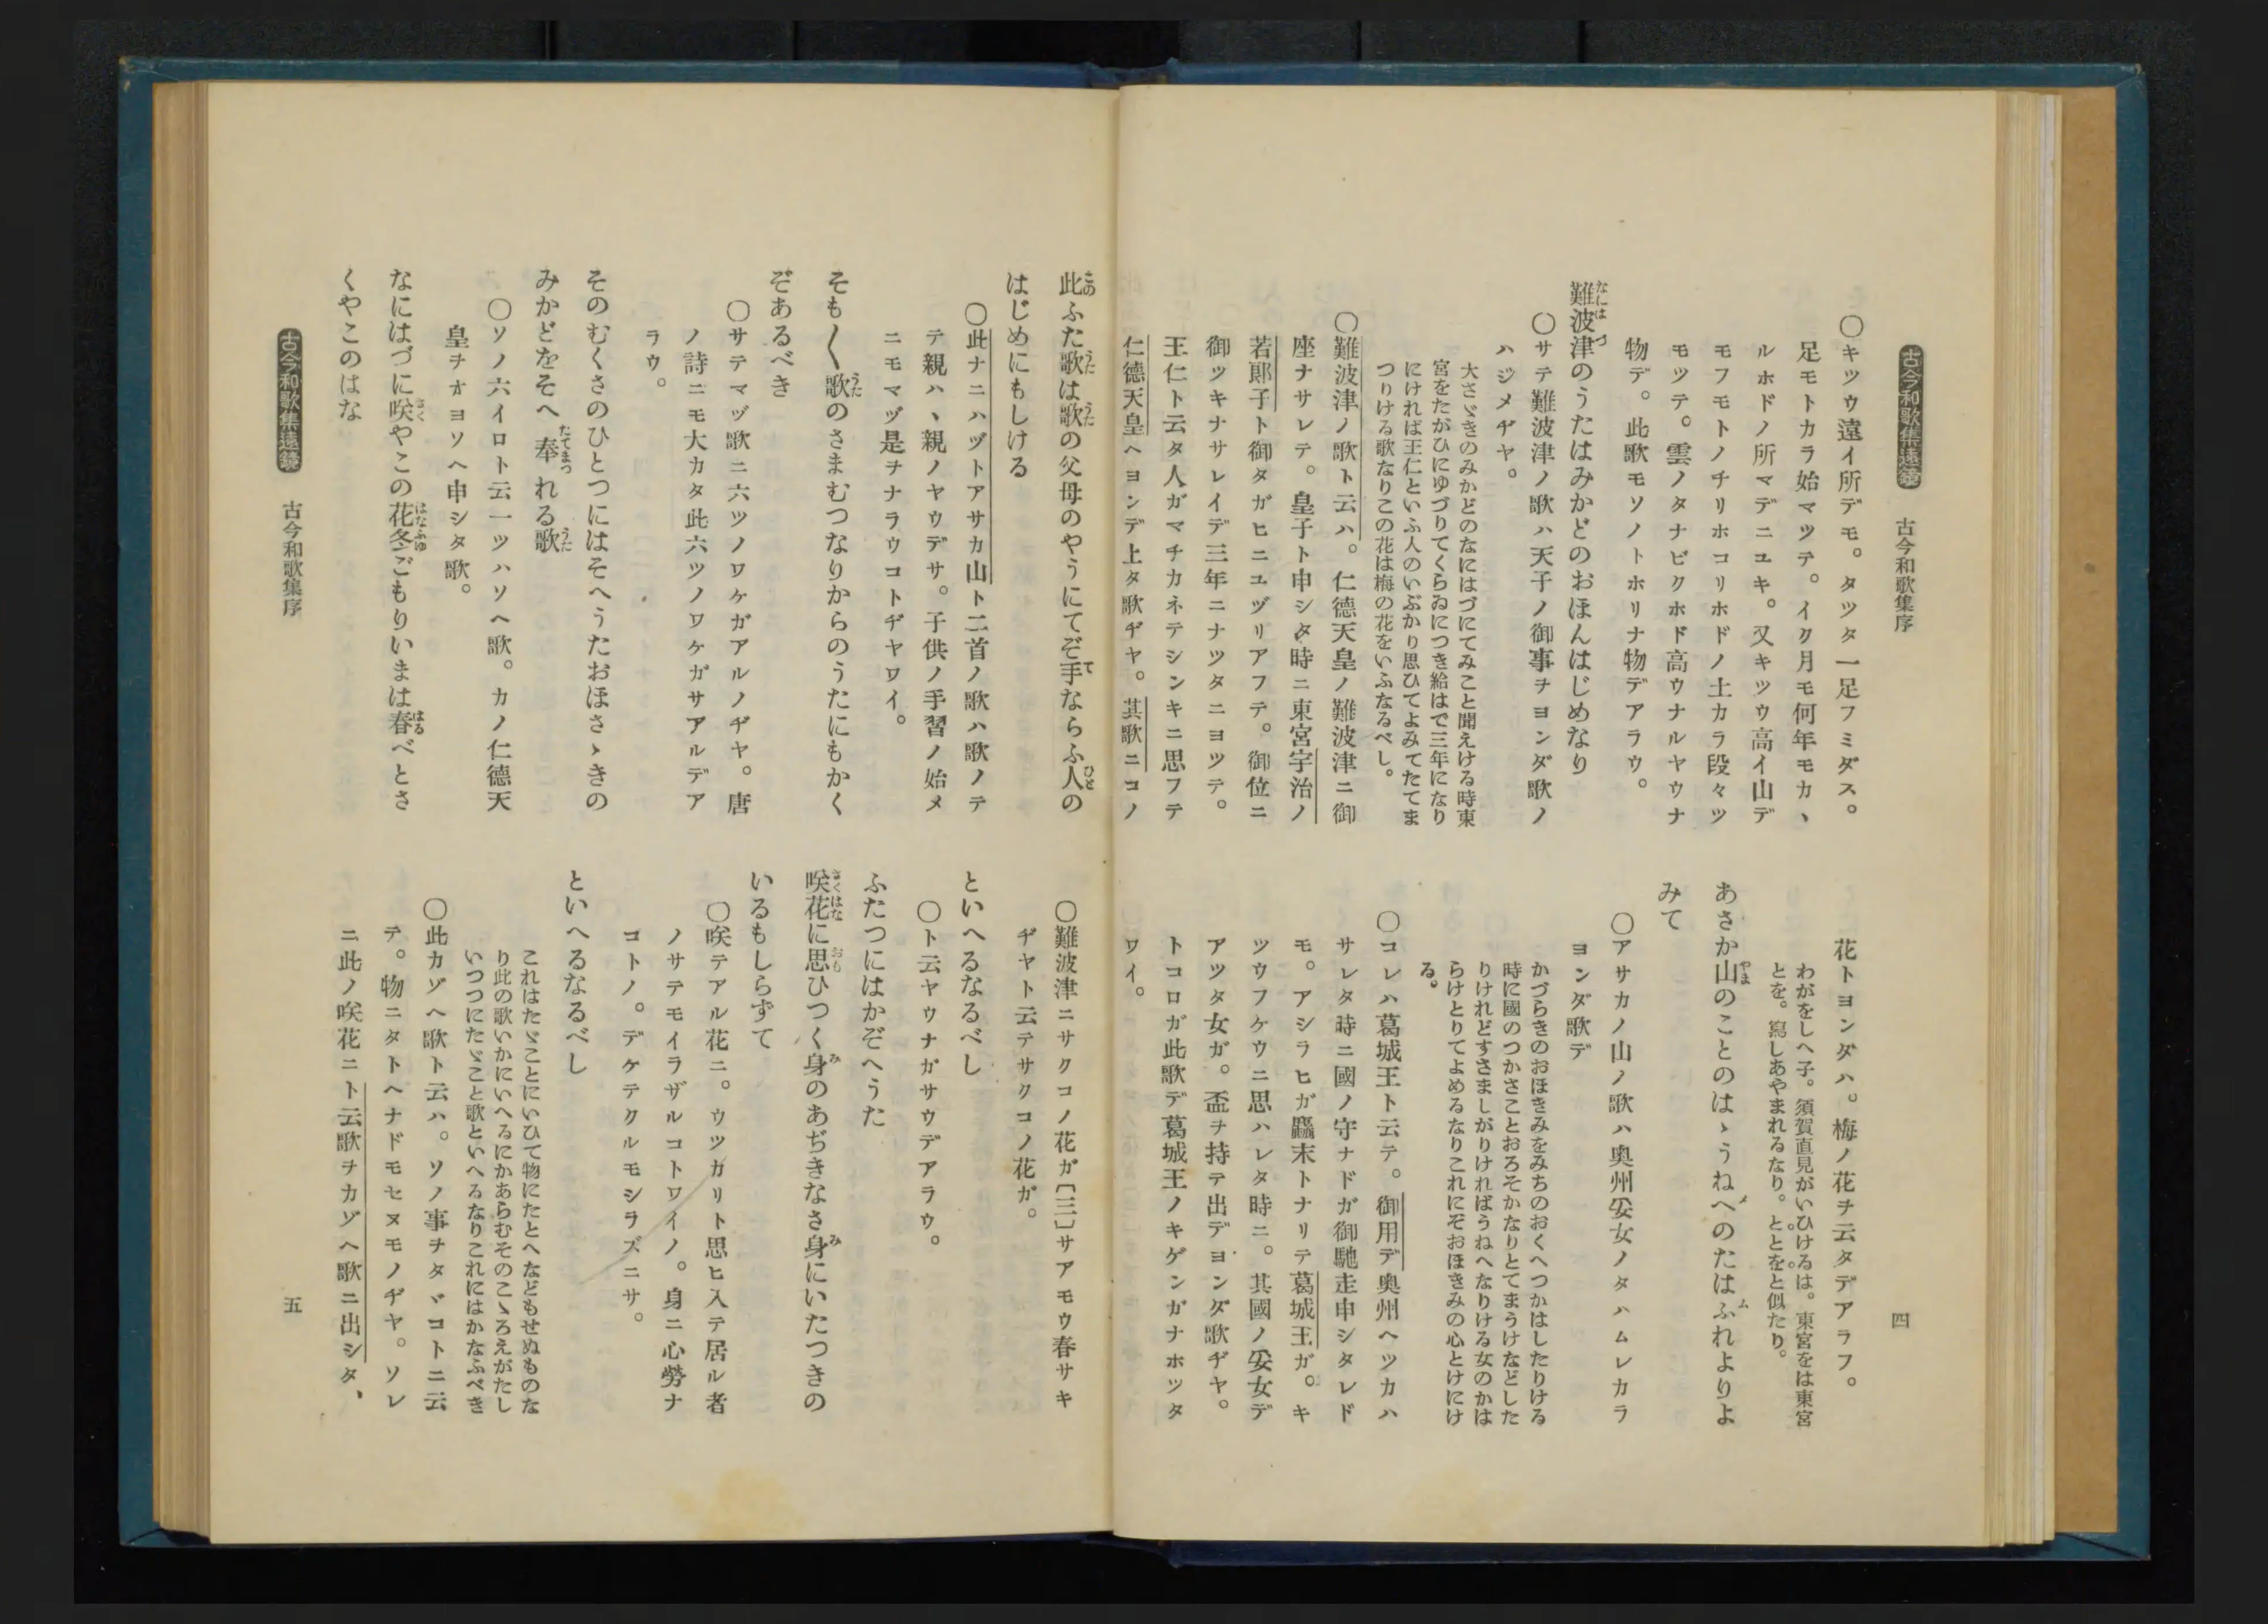 古今和歌集遠鏡　古今和歌集序
四
〇キツウ遠イ所デモ。タツタ一足フミダス。
足モトカラ始マツテ。イク月モ何年モカヽ
ルホドノ所マデニユキ。又キツウ高イ山デ
モフモトノチリホコリホドノ土カラ段々ツ
モツテ。雲ノタナビクホド高ウナルヤウナ
物デ。此歌モソノトホリナ物デアラウ。
難波津のうたはみかどのおほんはじめなり
〇サテ難波津ノ歌ハ天子ノ御事ヲヨンダ歌ノ
ハジメヂヤ。
大さゞきのみかどのなにはづにてみこと聞えける時東
宮をたがひにゆづりてくらゐにつき給はで三年になり
にければ王仁といふ人のいぶかり思ひてよみてたてま
つりける歌なりこの花は梅の花をいふなるべし。
〇難波津ノ歌ト云ハ。仁德天皇ノ難波津ニ御
座ナサレテ。皇子ト申シタ時ニ東宮宇治ノ
若郎子ト御タガヒニユヅリアフテ。御位ニ
御ツキナサレイデ三年ニナツタニヨツテ。
王仁ト云タ人ガマチカネテシンキニ思フテ
仁德天皇ヘヨンデ上タ歌ヂヤ。其歌ニコノ
花トヨンダハ。梅ノ花ヲ云タデアラフ。
わがをしへ子。須賀直見がいひけるは。東宮をは東宮
とを。寫しあやまれるなり。ととをと似たり。
あさか山のことのはゝうねへのたはふれよりよ
みて
〇アサカノ山ノ歌ハ奥州采女ノタハムレカラ
ヨンダ歌デ
かづらきのおほきみをみちのおくへつかはしたりける
時に國のつかさことおろそかなりとてまうけなどした
りけれどすさましがりければうねへなりける女のかは
らけとりてよめるなりこれにぞおほきみの心とけにけ
る。
〇コレハ葛城王ト云テ。御用デ奥州ヘツカハ
サレタ時ニ國ノ守ナドガ御馳走申シタレド
モ。アシラヒガ麤末トナリテ葛城王ガ。キ
ツウフケウニ思ハレタ時ニ。其國ノ采女デ
アツタ女ガ。盃ヲ持テ出デヨンダ歌ヂヤ。
トコロガ此歌デ葛城王ノキゲンガナホツタ
ワイ。
此ふた歌は歌の父母のやうにてぞ手ならふ人の
はじめにもしける
〇此ナニハヅトアサカ山ト二首ノ歌ハ歌ノテ
テ親ハヽ親ノヤウデサ。子供ノ手習ノ始メ
ニモマヅ是ヲナラウコトヂヤワイ。
そも〱歌のさまむつなりからのうたにもかく
ぞあるべき
〇サテマヅ歌ニ六ツノワケガアルノヂヤ。唐
ノ詩ニモ大カタ此六ツノワケガサアルデア
ラウ。
そのむくさのひとつにはそへうたおほさゝきの
みかどをそへ奉れる歌
〇ソノ六イロト云一ツハソヘ歌。カノ仁德天
皇ヲオヨソヘ申シタ歌。
なにはづに咲やこの花冬ごもりいまは春べとさ
くやこのはな
〇難波津ニサクコノ花ガ〔三〕サアモウ春サキ
ヂヤト云テサクコノ花ガ。
といへるなるべし
〇ト云ヤウナガサウデアラウ。
ふたつにはかぞへうた
咲花に思ひつく身のあぢきなさ身にいたつきの
いるもしらずて
〇咲テアル花ニ。ウツカリト思ヒ入テ居ル者
ノサテモイラザルコトワイノ。身ニ心勞ナ
コトノ。デケテクルモシラズニサ。
といへるなるべし
これはたゞことにいひて物にたとへなどもせぬものな
り此の歌いかにいへるにかあらむそのこゝろえがたし
いつつにたゞこと歌といへるなりこれにはかなふべき
〇此カゾヘ歌ト云ハ。ソノ事ヲタヾコトニ云
テ。物ニタトヘナドモセヌモノヂヤ。ソレ
ニ此ノ咲花ニト云歌ヲカゾヘ歌ニ出シタ、
古今和歌集遠鏡　古今和歌集序
五